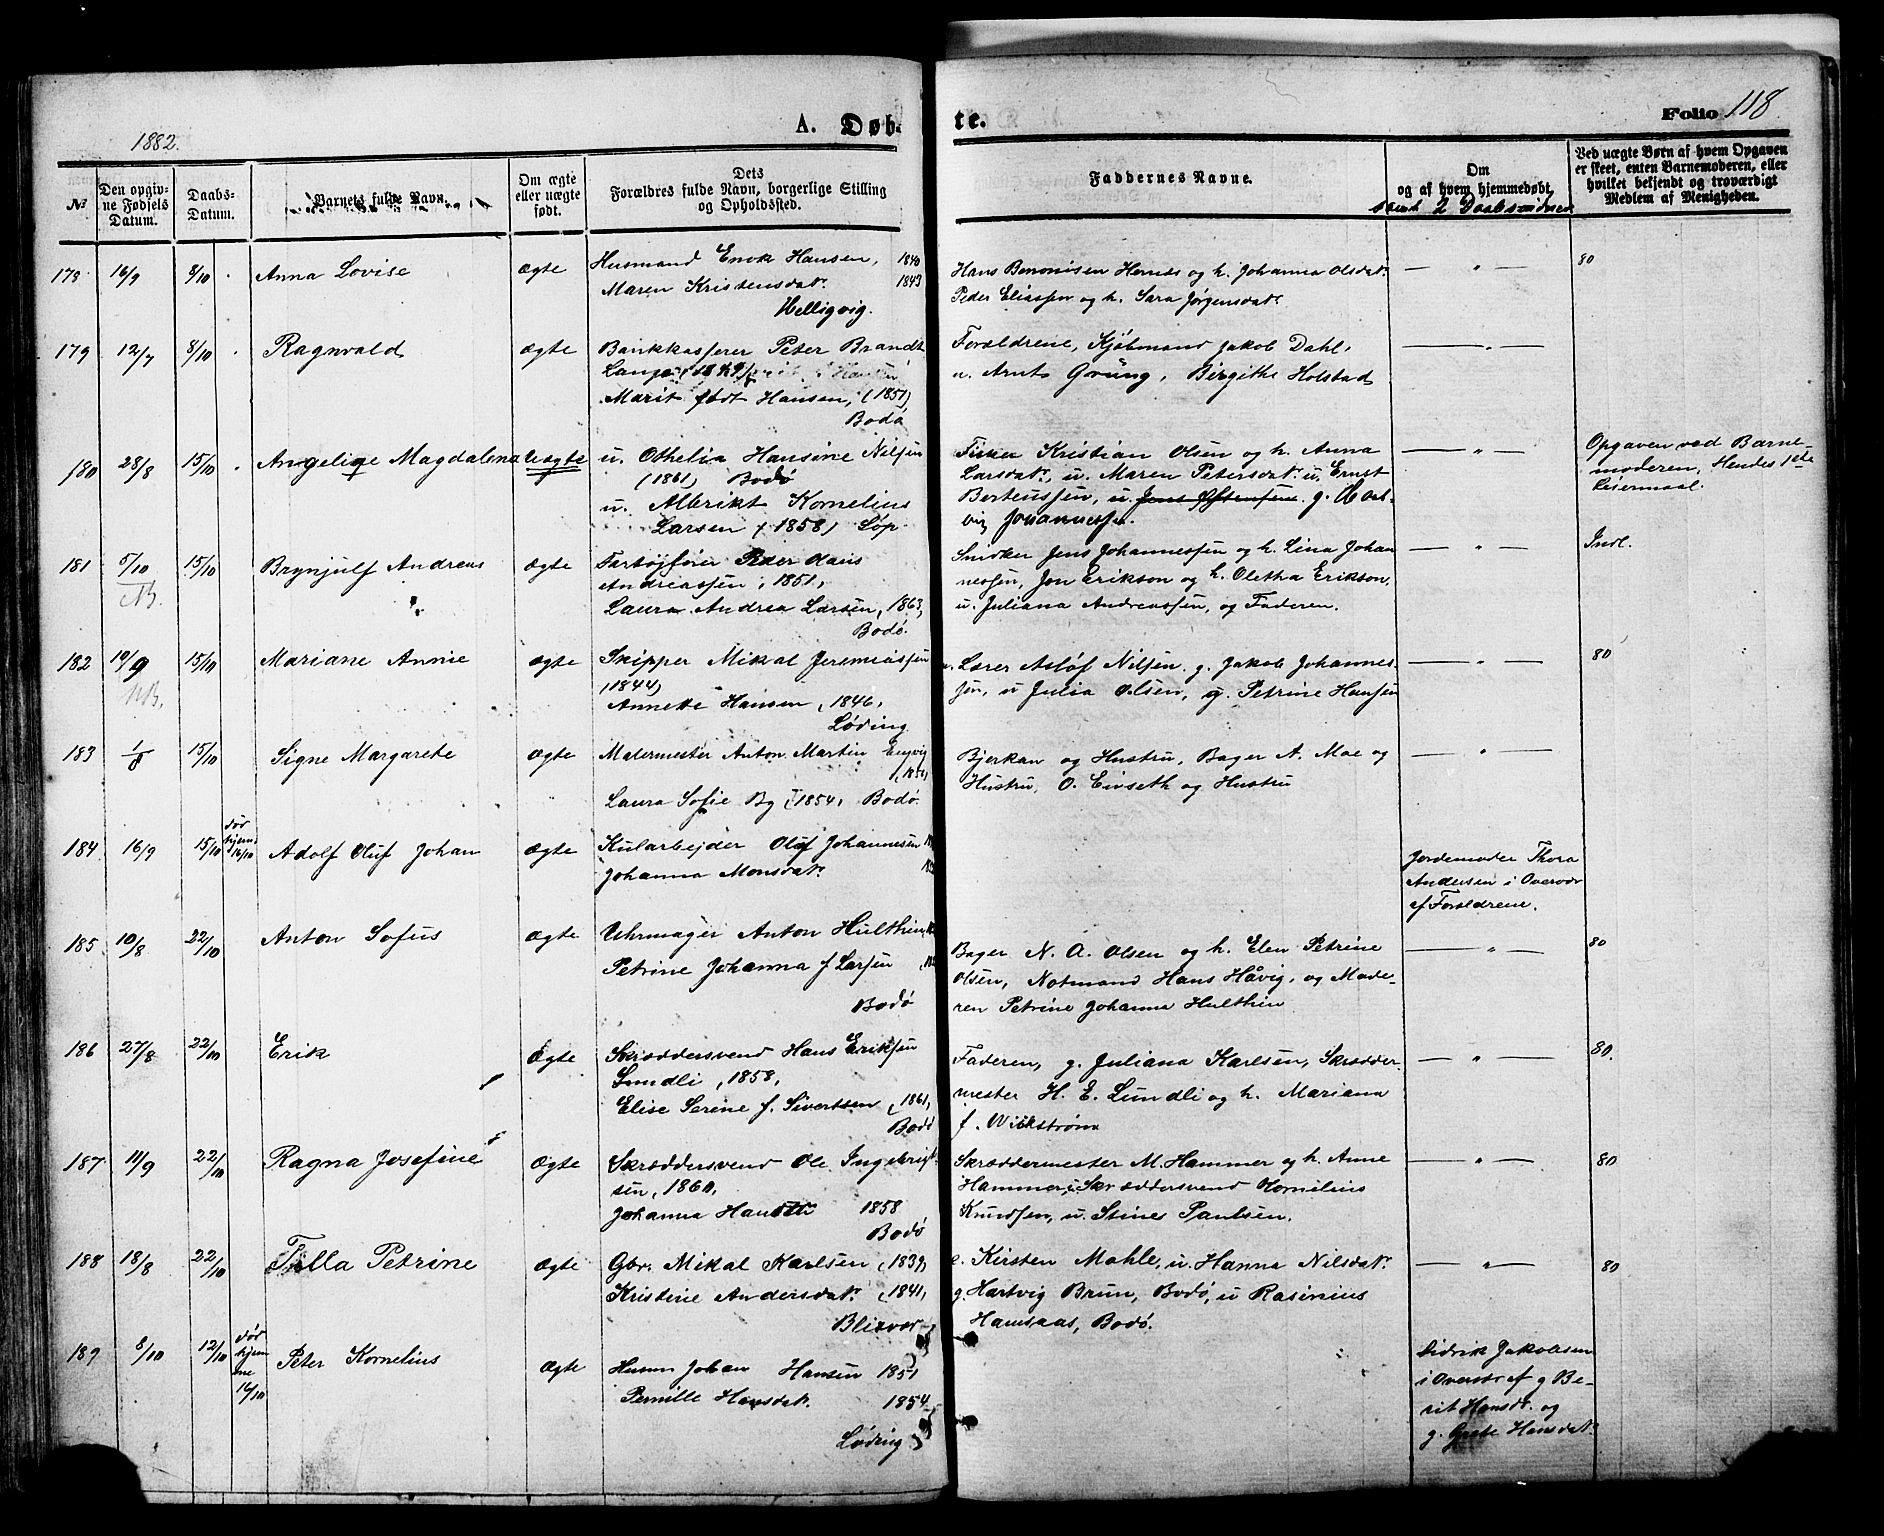 1882.
A. Døb-
te.
Folio 118
№
Den opgiv-
ne Fødsels
Datum.
Daabs-
Datum.
Barnets fulde Navn.
Om ægte
eller uægte
født.
Dets
Forældres fulde Navn, borgerlige Stilling
og Opholdssted.
Faddernes Navne.
Om
og af hvem hjemmedøbt,
samt 2 Daabsvidner
Ved uægte Børn af hvem Opgaven
er skeet, enten Barnemoderen, eller
hvilket bekjendt og troværdigt
Medlem af Menigheden.
178 16/9 8/10 Anna Lovise ægte Husmand Enok Hansen, 1840
Maren Kristensdatr. 1843
Helligvig.
Hans Benonisen Hernes og h. Johanna Olsdatr.
Peder Eliassen og h. Sara Jørgensdatr.
80
179 12/7 8/10 Ragnvald ægte Bankkasserer Peter Brandt
Lange (1849)
Marit født Hansen, (1851)
Bodø
Forældrene, Kjøbmand Jakob Dahl,
u. Arnt Grüng, Birgithe Holstad
180 28/8 15/10 Angeliqe Magdalena Uægte u. Othelia Hansine Nilsen
(1861) Bodø
u. Albrikt Kornelius
Larsen (1858) Løp
Fisker Kristian Olsen og h. Anna
Larsdatr., u. Maren Petersdatr. u. Ernst
Berteussen, u. g.
Johannessen.
Opgaven ved Barne-
moderen, Hendes 1ste
Leiermaal.
181 5/10 15/10 Brynjulf Andreas ægte Fartøjfører Peder Hans
NB.
Andreassen, 1851,
Laura Andrea Larsen, 1863,
Bodø.
Snidker Jens Johannessen og h. Lina Johan
nessen, Jon Erikson og h. Oletha Erikson,
u. Juliana Andreassen, og Faderen.
Indl.
182 10/9 15/10 Mariane Annie ægte Skipper Mikal Jeremiassen
NB.
(1844)
Annette Hansen, 1846,
Løding
Lærer Asløf Nilsen, g. Jakob Johannes-
sen, u Julia Olsen, g. Petrine Hansen
80
183 1/8 15/10 Signe Margarete ægte Malermester Anton Martin Engvig
Laura Sofie By (1854, Bodø.
Bjerkan og Hustru, Bager A. Moe og
Hustru, O. Eivseth og Hustru
184 16/9 15/10 dør
hjem.
16/10
Adolf Oluf Johan ægte Kularbejder Oluf Johannesen
Johanna Monsdatr.
Jordemoder Thora
Andersen i Overvær
af Forældrene.
185 10/8 22/10 Anton Sofus ægte Uhrmager Anton Hulthin,
Petrine Johanna f Larsen
Bodø
Bager N. A. Olsen og h. Elen Petrine
Olsen, Notmand Hans Håvig, og Mode-
ren Petrine Johanna Hulthin
80
186 27/8 22/10 Erik ægte Skræddersvend Hans Eriksen
Lundli, 1858,
Elise Serine f. Sivertsen, 1861,
Bodø
Faderen, g. Juliana Karlsen, Skrædder-
mester H. E. Lundli og h. Mariana
f. Wiikstrøm
80.
187 11/9 22/10 Ragna Josefine ægte Skræddersvend Ole Ingebrigt
sen, 1860,
Johanna 1858
Bodø
Skræddermester M. Hammer og h. Anne
Hammer, Skræddersvend Kornelius
Knudsen, u. Stine Paulsen.
80
188 18/8 22/10 Tilla Petrine ægte Gbr. Mikal Karlsen, (1839)
Kristine Andersdatr. (1841,
Blixvær
e. Kirsten Mohle, u. Hanna Nilsdatr.
g. Hartvig Brun, Bodø, u Rasinius
Hamsaas, Bodø.
80
189 8/10 12/10 dør
hjem
me
16/10
Peter Kornelius ægte Husm. Johan Hansen 1851
Pernille Hansdatr. 1854
Løding
Didrik Jakobsen
i Overvær af g Be-
rit Hansdr. og
g. Grete Hansdatr.